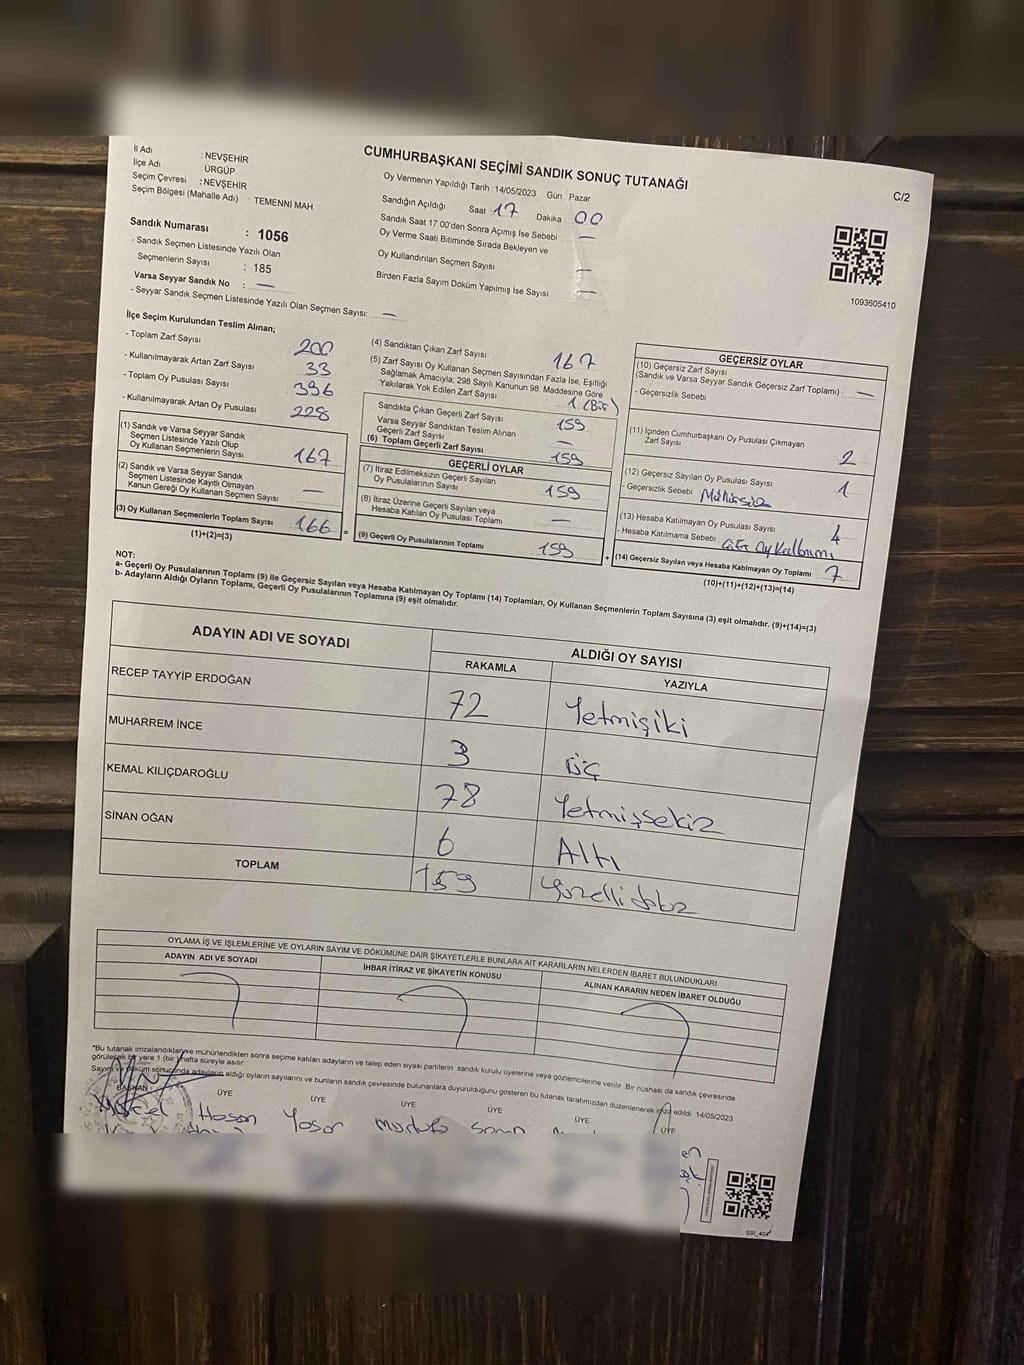 CUMHURBAŞKANI SEÇİMİ SANDIK SONUÇ TUTANAĞI
C/2
İl Adı : NEVŞEHİR
İlçe Adı : ÜRGÜP
Seçim Çevresi : NEVŞEHİR
Seçim Bölgesi (Mahalle Adı) : TEMENNİ MAH
Sandık Numarası : 1056
- Sandık Seçmen Listesinde Yazılı Olan
Seçmenlerin Sayısı : 185
Varsa Seyyar Sandık No : —
- Seyyar Sandık Seçmen Listesinde Yazılı Olan Seçmen Sayısı: —
Oy Vermenin Yapıldığı Tarih : 14/05/2023 Gün : Pazar
Sandığın Açıldığı Saat 17 Dakika : 00
Sandık Saat 17:00'den Sonra Açımış İse Sebebi —
Oy Verme Saati Bitiminde Sırada Bekleyen ve
Oy Kullandırılan Seçmen Sayısı —
Birden Fazla Sayım Döküm Yapılmış İse Sayısı —
1093605410
İlçe Seçim Kurulundan Teslim Alınan;
- Toplam Zarf Sayısı 200
- Kullanılmayarak Artan Zarf Sayısı 33
- Toplam Oy Pusulası Sayısı 396
- Kullanılmayarak Artan Oy Pusulası 228
(1) Sandık ve Varsa Seyyar Sandık
Seçmen Listesinde Yazılı Olup
Oy Kullanan Seçmenlerin Sayısı 167
(2) Sandık ve Varsa Seyyar Sandık
Seçmen Listesinde Kayıtlı Olmayan
Kanun Gereği Oy Kullanan Seçmen Sayısı —
(3) Oy Kullanan Seçmenlerin Toplam Sayısı 166 =
(1)+(2)=(3)
(4) Sandıktan Çıkan Zarf Sayısı 167
(5) Zarf Sayısı Oy Kullanan Seçmen Sayısından Fazla İse, Eşitliği
Sağlamak Amacıyla, 298 Sayılı Kanunun 98. Maddesine Göre
Yakılarak Yok Edilen Zarf Sayısı 1 (Bir)
Sandıkta Çıkan Geçerli Zarf Sayısı 159
Varsa Seyyar Sandıktan Teslim Alınan
Geçerli Zarf Sayısı —
(6) Toplam Geçerli Zarf Sayısı 159
GEÇERLİ OYLAR
(7) İtiraz Edilmeksizin Geçerli Sayılan
Oy Pusulalarının Sayısı 159
(8) İtiraz Üzerine Geçerli Sayılan veya
Hesaba Katılan Oy Pusulası Toplamı —
(9) Geçerli Oy Pusulalarının Toplamı 159 +
GEÇERSİZ OYLAR
(10) Geçersiz Zarf Sayısı
(Sandık ve Varsa Seyyar Sandık Geçersiz Zarf Toplamı) —
- Geçersizlik Sebebi
(11) İçinden Cumhurbaşkanı Oy Pusulası Çıkmayan
Zarf Sayısı 2
(12) Geçersiz Sayılan Oy Pusulası Sayısı 1
- Geçersizlik Sebebi Mühürsüz
(13) Hesaba Katılmayan Oy Pusulası Sayısı 4
- Hesaba Katılmama Sebebi : Çift Oy Kullanımı
(14) Geçersiz Sayılan veya Hesaba Katılmayan Oy Toplamı 7
(10)+(11)+(12)+(13)=(14)
NOT:
a- Geçerli Oy Pusulalarının Toplamı (9) ile Geçersiz Sayılan veya Hesaba Katılmayan Oy Toplamı (14) Toplamları, Oy Kullanan Seçmenlerin Toplam Sayısına (3) eşit olmalıdır. (9)+(14)=(3)
b- Adayların Aldığı Oyların Toplamı, Geçerli Oy Pusulalarının Toplamına (9) eşit olmalıdır.
ADAYIN ADI VE SOYADI ALDIĞI OY SAYISI
RAKAMLA YAZIYLA
RECEP TAYYİP ERDOĞAN 72 Yetmişiki
MUHARREM İNCE 3 üç
KEMAL KILIÇDAROĞLU 78 Yetmişsekiz
SİNAN OĞAN 6 Altı
TOPLAM 159 Yüzellidokuz
OYLAMA İŞ VE İŞLEMLERİNE VE OYLARIN SAYIM VE DÖKÜMÜNE DAİR ŞİKAYETLERLE BUNLARA AİT KARARLARIN NELERDEN İBARET BULUNDUKLARI
ADAYIN ADI VE SOYADI İHBAR İTİRAZ VE ŞİKAYETİN KONUSU ALINAN KARARIN NEDEN İBARET OLDUĞU
"Bu tutanak imzalandıktan ve mühürlendikten sonra seçime katılan adayların ve talep eden siyasi partilerin sandık kurulu üyelerine veya gözlemcilerine verilir. Bir nüshası da sandık çevresinde
görülecek bir yere 1 (bir) hafta süreyle asılır.
Sayım ve döküm sonucunda adayların aldığı oyların sayılarını ve bunların sandık çevresinde bulunanlara duyurulduğunu gösteren bu tutanak tarafımızdan düzenlenerek imza edildi. 14/05/2023
BAŞKAN ÜYE ÜYE ÜYE ÜYE ÜYE ÜYE
Hasan Yaşar Mustafa